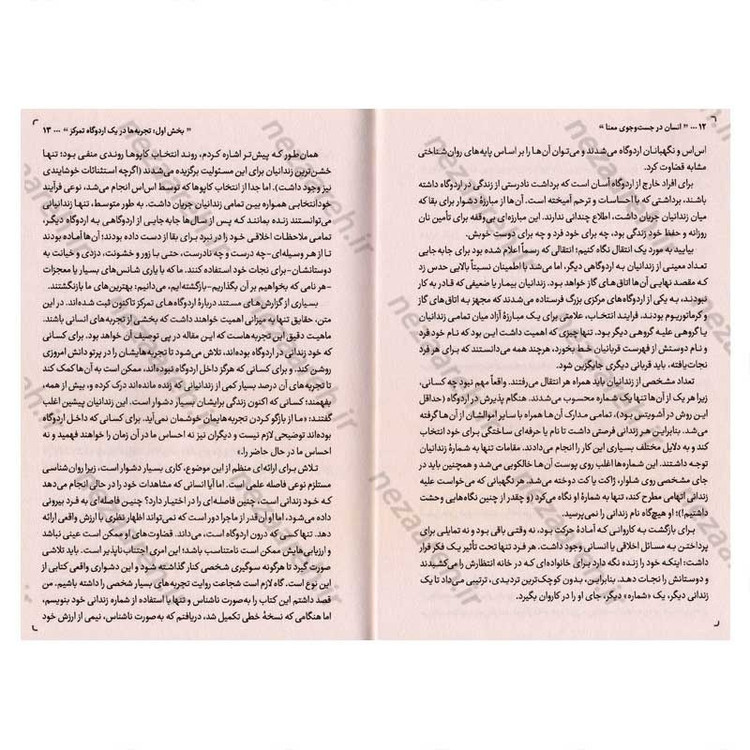 ۱۲ ... « انسان در جست‌وجوی معنا »
اس‌اس و نگهبانان اردوگاه می‌شدند و می‌توان آن‌ها را بر اساس پایه‌های روان‌شناختی
مشابه قضاوت کرد.
برای افراد خارج از اردوگاه آسان است که برداشت نادرستی از زندگی در اردوگاه داشته
باشند، برداشتی که با احساسات و ترحم آمیخته است. آن‌ها از مبارزهٔ دشوار برای بقا که
میان زندانیان جریان داشت، اطلاع چندانی ندارند. این مبارزه‌ای بی‌وقفه برای تأمین نان
روزانه و حفظ خود زندگی بود، چه برای خود فرد و چه برای دوست خوبش.
بیایید به مورد یک انتقال نگاه کنیم؛ انتقالی که رسماً اعلام شده بود برای جابه جایی
تعداد معینی از زندانیان به اردوگاهی دیگر، اما می‌شد با اطمینان نسبتاً بالایی حدس زد
که مقصد نهایی آن‌ها اتاق‌های گاز خواهد بود. زندانیان بیمار یا ضعیفی که قادر به کار
نبودند، به یکی از اردوگاه‌های مرکزی بزرگ فرستاده می‌شدند که مجهز به اتاق‌های گاز
و کرماتوریوم بودند. فرایند انتخاب، علامتی برای یک مبارزهٔ آزاد میان تمامی زندانیان
یا گروهی علیه گروهی دیگر بود. تنها چیزی که اهمیت داشت این بود که نام خود فرد
و نام دوستش از فهرست قربانیان خط بخورد، هرچند همه می‌دانستند که برای هر فرد
نجات‌یافته، باید قربانی دیگری جایگزین شود.
تعداد مشخصی از زندانیان باید همراه هر انتقال می‌رفتند. واقعاً مهم نبود چه کسانی،
زیرا هر یک از آن‌ها تنها یک شماره محسوب می‌شدند. هنگام پذیرش در اردوگاه (حداقل
این روش در آشویتس بود)، تمامی مدارک آن‌ها همراه با سایر اموالشان از آن‌ها گرفته
می‌شد. بنابراین هر زندانی فرصتی داشت تا نام یا حرفه‌ای ساختگی برای خود انتخاب
کند و به دلایل مختلف بسیاری این کار را انجام می‌دادند. مقامات تنها به شماره زندانیان
توجه داشتند. این شماره‌ها اغلب روی پوست آن‌ها خالکوبی می‌شد و همچنین باید در
جای مشخصی روی شلوار، ژاکت یا کت دوخته می‌شد. هر نگهبانی که می‌خواست علیه
زندانی اتهامی مطرح کند، تنها به شمارهٔ او نگاه می‌کرد (و چقدر از چنین نگاه‌هایی وحشت
داشتیم!)؛ او هیچ‌گاه نام زندانی را نمی‌پرسید.
برای بازگشت به کاروانی که آمادهٔ حرکت بود، نه وقتی باقی بود و نه تمایلی برای
پرداختن به مسائل اخلاقی یا انسانی وجود داشت. هر فرد تنها تحت تأثیر یک فکر قرار
داشت؛ اینکه خود را زنده نگه دارد برای خانواده‌ای که در خانه انتظارش را می‌کشیدند
و دوستانش را نجات دهد. بنابراین، بدون کوچک‌ترین تردیدی، ترتیبی می‌داد تا یک
زندانی دیگر، یک «شماره» دیگر، جای او را در کاروان بگیرد.
« بخش اول؛ تجربه‌ها در یک اردوگاه تمرکز » ... ۱۳
همان‌طور که پیش‌تر اشاره کردم، روند انتخاب کاپوها روندی منفی بود؛ تنها
خشن‌ترین زندانیان برای این مسئولیت برگزیده می‌شدند (اگرچه استثنائات خوشایندی
نیز وجود داشت). اما جدا از انتخاب کاپوها که توسط اس‌اس انجام می‌شد، نوعی فرآیند
خودانتخابی همواره بین تمامی زندانیان جریان داشت. به طور متوسط، تنها زندانیانی
می‌توانستند زنده بمانند که پس از سال‌ها جابه جایی از اردوگاهی به اردوگاه دیگر،
تمامی ملاحظات اخلاقی خود را در نبرد برای بقا از دست داده بودند؛ آن‌ها آماده بودند
تا از هر وسیله‌ای-چه درست و چه نادرست، حتی با زور و خشونت، دزدی و خیانت به
دوستانشان-برای نجات خود استفاده کنند. ما که با یاری شانس‌های بسیار یا معجزات
-هر نامی که بخواهیم بر آن بگذاریم-بازگشته‌ایم، می‌دانیم: بهترین‌های ما بازنگشتند.
بسیاری از گزارش‌های مستند دربارهٔ اردوگاه‌های تمرکز تاکنون ثبت شده‌اند. در این
متن، حقایق تنها به میزانی اهمیت خواهند داشت که بخشی از تجربه‌های انسانی باشند.
ماهیت دقیق این تجربه‌هاست که این مقاله در پی توصیف آن خواهد بود. برای کسانی
که خود زندانی در اردوگاه بوده‌اند، تلاش می‌شود تا تجربه‌هایشان را در پرتو دانش امروزی
روشن کند. و برای کسانی که هرگز داخل اردوگاه نبوده‌اند، ممکن است به آن‌ها کمک کند
تا تجربه‌های آن درصد بسیار کمی از زندانیانی که زنده مانده‌اند درک کرده و، بیش از همه،
بفهمند؛ کسانی که اکنون زندگی برایشان بسیار دشوار است. این زندانیان پیشین اغلب
گفتند: «ما از بازگو کردن تجربه‌هایمان خوشمان نمی‌آید. برای کسانی که داخل اردوگاه
بوده‌اند توضیحی لازم نیست و دیگران نیز نه احساس ما در آن زمان را خواهند فهمید و نه
احساس ما در حال حاضر را.»
تلاش برای ارائه‌ای منظم از این موضوع، کاری بسیار دشوار است، زیرا روان‌شناسی
مستلزم نوعی فاصله علمی است. اما آیا انسانی که مشاهدات خود را در حالی انجام می‌دهد
که خود زندانی است، چنین فاصله‌ای را در اختیار دارد؟ چنین فاصله‌ای به فرد بیرونی
داده می‌شود، اما او آن‌قدر از ماجرا دور است که نمی‌تواند اظهار نظری با ارزش واقعی ارائه
دهد. تنها کسی که درون اردوگاه است، می‌داند. قضاوت‌های او ممکن است عینی نباشد
و ارزیابی‌هایش ممکن است نامتناسب باشد؛ این امری اجتناب‌ناپذیر است. باید تلاشی
صورت گیرد تا هرگونه سوگیری شخصی کنار گذاشته شود و این دشواری واقعی کتابی از
این نوع است. گاه لازم است شجاعت روایت تجربه‌های بسیار شخصی را داشته باشیم. من
قصد داشتم این کتاب را به‌صورت ناشناس و تنها با استفاده از شماره زندانی خود بنویسم،
اما هنگامی که نسخهٔ خطی تکمیل شد، دریافتم که به‌صورت ناشناس، نیمی از ارزش خود
nezaareh.ir